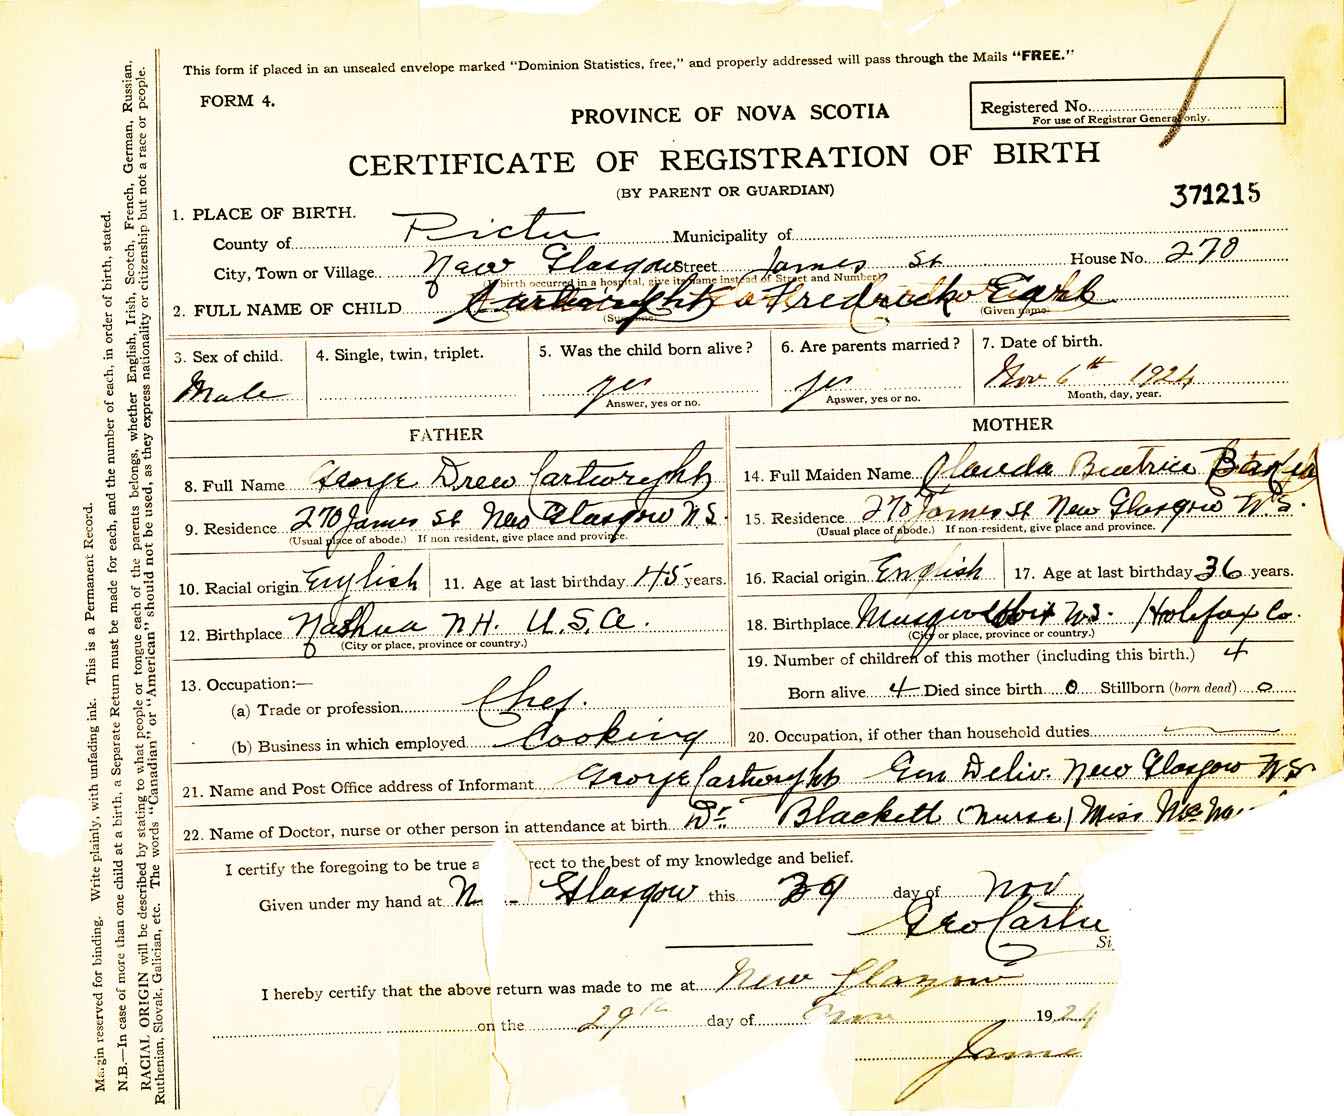 This form if placed in an unsealed envelope marked "Dominion Statistics, free," and properly addressed will pass through the Mails "FREE."
FORM 4.
PROVINCE OF NOVA SCOTIA
Registered No.
For use of Registrar General only.
CERTIFICATE OF REGISTRATION OF BIRTH
(BY PARENT OR GUARDIAN)
371215
1. PLACE OF BIRTH.
County of Pictu Municipality of
City, Town or Village New Glasgow Street James St House No. 270
(If birth occurred in a hospital, give its name instead of Street and Number)
2. FULL NAME OF CHILD Cartwright Fredrick Earl
(Surname) (Given name)
3. Sex of child. 4. Single, twin, triplet. 5. Was the child born alive? 6. Are parents married? 7. Date of birth.
Male yes yes Nov 6th 1924
Answer, yes or no. Answer, yes or no. Month, day, year.
FATHER
8. Full Name George Drew Cartwright
9. Residence 270 James St New Glasgow N.S.
(Usual place of abode.) If non resident, give place and province.
10. Racial origin English 11. Age at last birthday 45 years.
12. Birthplace Nashua N.H. U.S.A.
(City or place, province or country.)
13. Occupation:—
(a) Trade or profession Chef.
(b) Business in which employed Cooking
MOTHER
14. Full Maiden Name Clauda Beatrice
15. Residence 270 James St New Glasgow N.S.
(Usual place of abode.) If non-resident, give place and province.
16. Racial origin English 17. Age at last birthday 36 years.
18. Birthplace N.S. Halifax Co.
(City or place, province or country.)
19. Number of children of this mother (including this birth.) 4
Born alive 4 Died since birth 0 Stillborn (born dead) 0
20. Occupation, if other than household duties
21. Name and Post Office address of Informant George Cartwright Gen Deliv. New Glasgow N.S
22. Name of Doctor, nurse or other person in attendance at birth Dr. Blackett (Nurse) Miss
I certify the foregoing to be true a rect to the best of my knowledge and belief.
Given under my hand at N Glasgow this 29 day of Nov
Geo Cartw
Si
I hereby certify that the above return was made to me at New Glasgow
on the 29th day of Nov 1924
Jame
Margin reserved for binding. Write plainly, with unfading ink. This is a Permanent Record.
N.B.—In case of more than one child at a birth, a Separate Return must be made for each, and the number of each, in order of birth, stated.
RACIAL ORIGIN will be described by stating to what people or tongue each of the parents belongs, whether English, Irish, Scotch, French, German, Russian,
Ruthenian, Slovak, Galician, etc. The words "Canadian" or "American" should not be used, as they express nationality or citizenship but not a race or people.